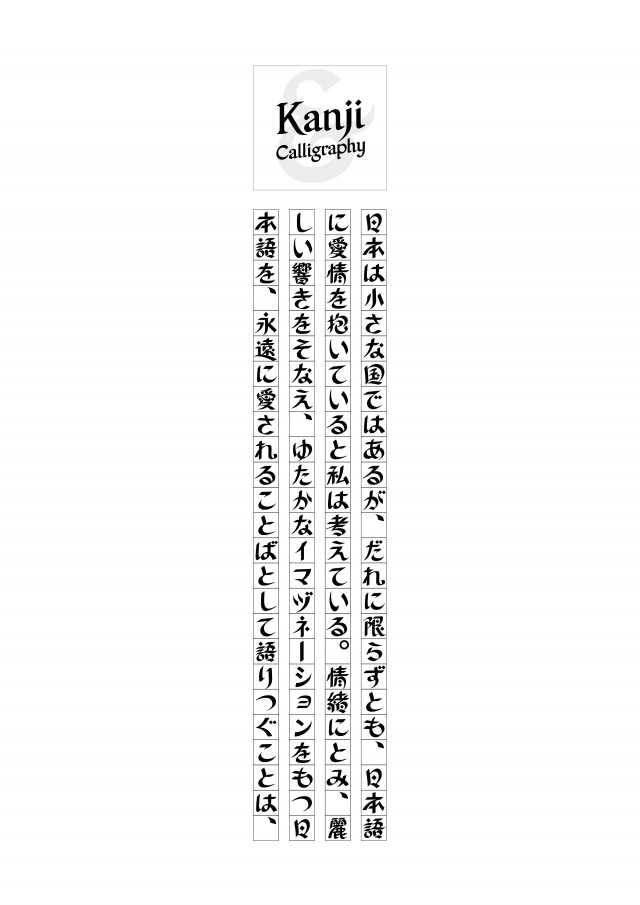 &
Kanji
Calligraphy
日本は小さな国ではあるが、だれに限らずとも、日本語
に愛情を抱いていると私は考えている。情緒にとみ、麗
しい響きをそなえ、ゆたかなイマヅネーションをもつ日
本語を、永遠に愛されることばとして語りつぐことは、